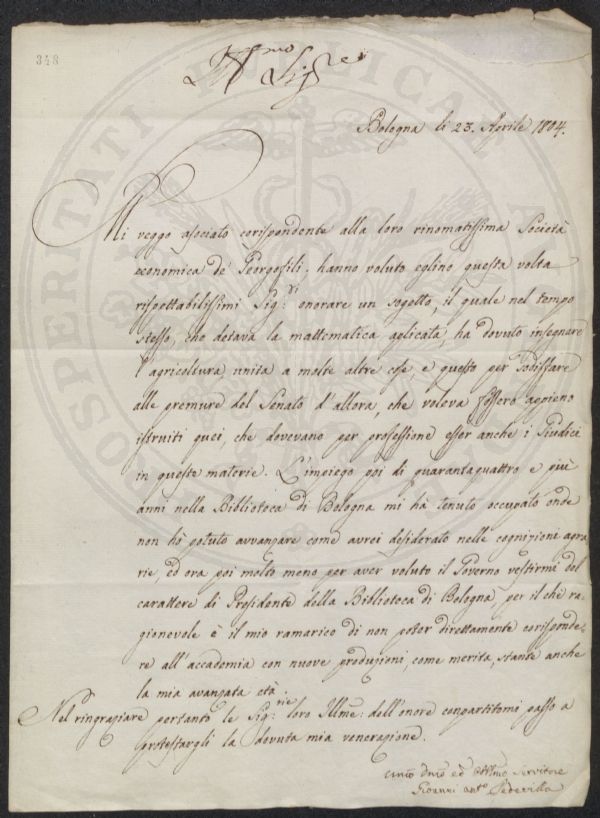 348
Ill.mo Sig.re
Bologna li 23. Aprile 1804.
Mi veggo asociato corispondente alla loro rinomatissima Società
economica de' Georgofili, hanno voluto eglino questa volta
rispettabilissimi Sig.ri onorare un sogetto, il quale nel tempo
stesso, che detava la mattematica aplicata, ha dovuto insegnare
l'agricoltura, unita a molte altre cose, e questo per sodisfare
alle premure del Senato d'allora, che voleva fossero appieno
istruiti quei, che dovevano per professione esser anche i Giudici
in queste materie. L'impiego poi di quarantaquattro e più
anni nella Biblioteca di Bologna mi hà tenuto occupato onde
non hò potuto avvanzare come avrei desiderato nelle cognizioni agra
rie, ed ora poi molto meno per aver voluto il Governo vestirmi del
carattere di Presidente della Biblioteca di Bologna, per il che ra
gionevole è il mio ramarico di non poter direttamente corisponde
re all'accademia con nuove produzioni, come merita, stante anche
la mia avanzata età.
Nel ringraziare pertanto le Sig.rie loro Illme: dell'onore conpartitomi passo a
protestargli la dovuta mia venerazione.
Umo Dmo ed Obbmo Servitore
Giovanni Anto
PROSPERITATI PUBLICAE